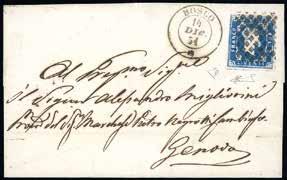 BOSCO
14
DIC.
54
Al Pregmo Sigr
il Signor Alessandro Migliorini
Marchese Pietro Negrotto Cambiaso
Genova